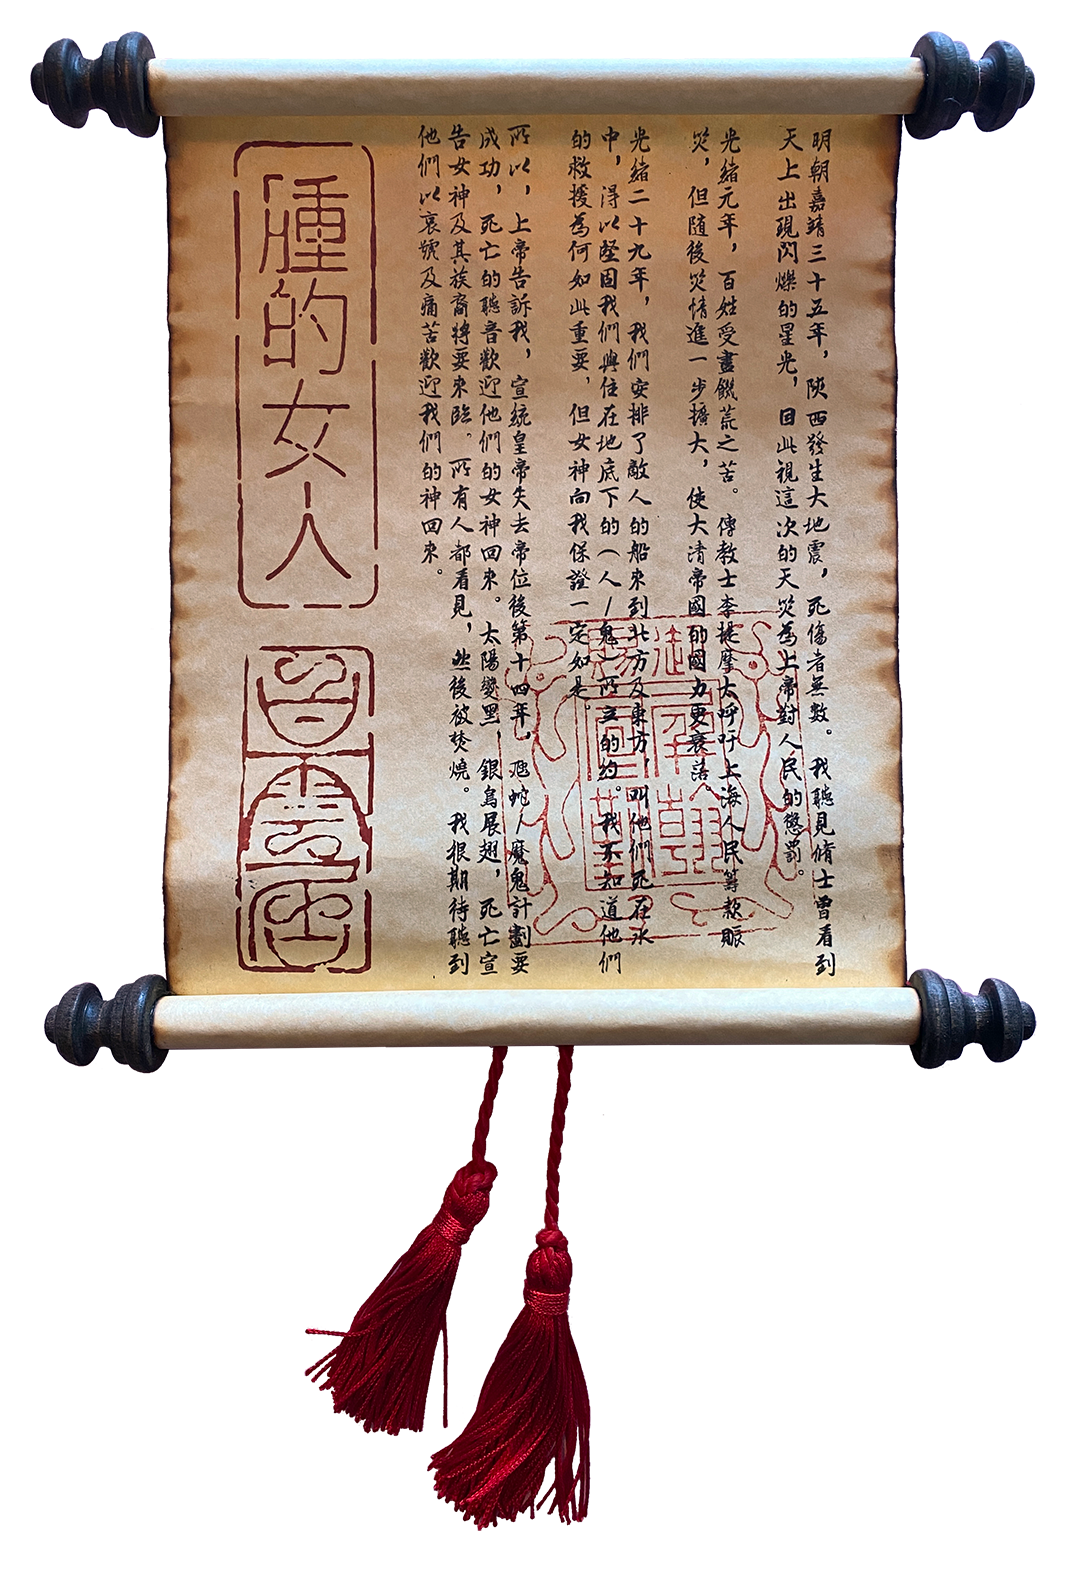 明朝嘉靖三十五年，陝西發生大地震，死傷者無數。我聽見脩士曾看到
天上出現閃爍的星光，因此視這次的天災為上帝對人民的懲罰。
光緒元年，百姓受盡饑荒之苦。傳教士李提摩太呼吁上海人民籌款賑
災，但隨後災情進一步擴大，使大清帝國的國力更衰落。
光緒二十九年，我們安排了敵人的船來到北方及東方，叫他們死在水
中，得以堅固我們與住在地底下的（人/鬼）所立的約。我不知道他們
的救援為何如此重要，但女神向我保證一定如是。
所以，上帝告訴我，宣統皇帝失去帝位後第十四年，虺蛇/魔鬼計劃要
成功，死亡的聽音歡迎他們的女神回來。太陽變黑，銀鳥展翅，死亡宣
告女神及其族裔將要來臨。所有人都看見，然後被焚燒。我很期待聽到
他們以哀號及痛苦歡迎我們的神回來。
腫的女人